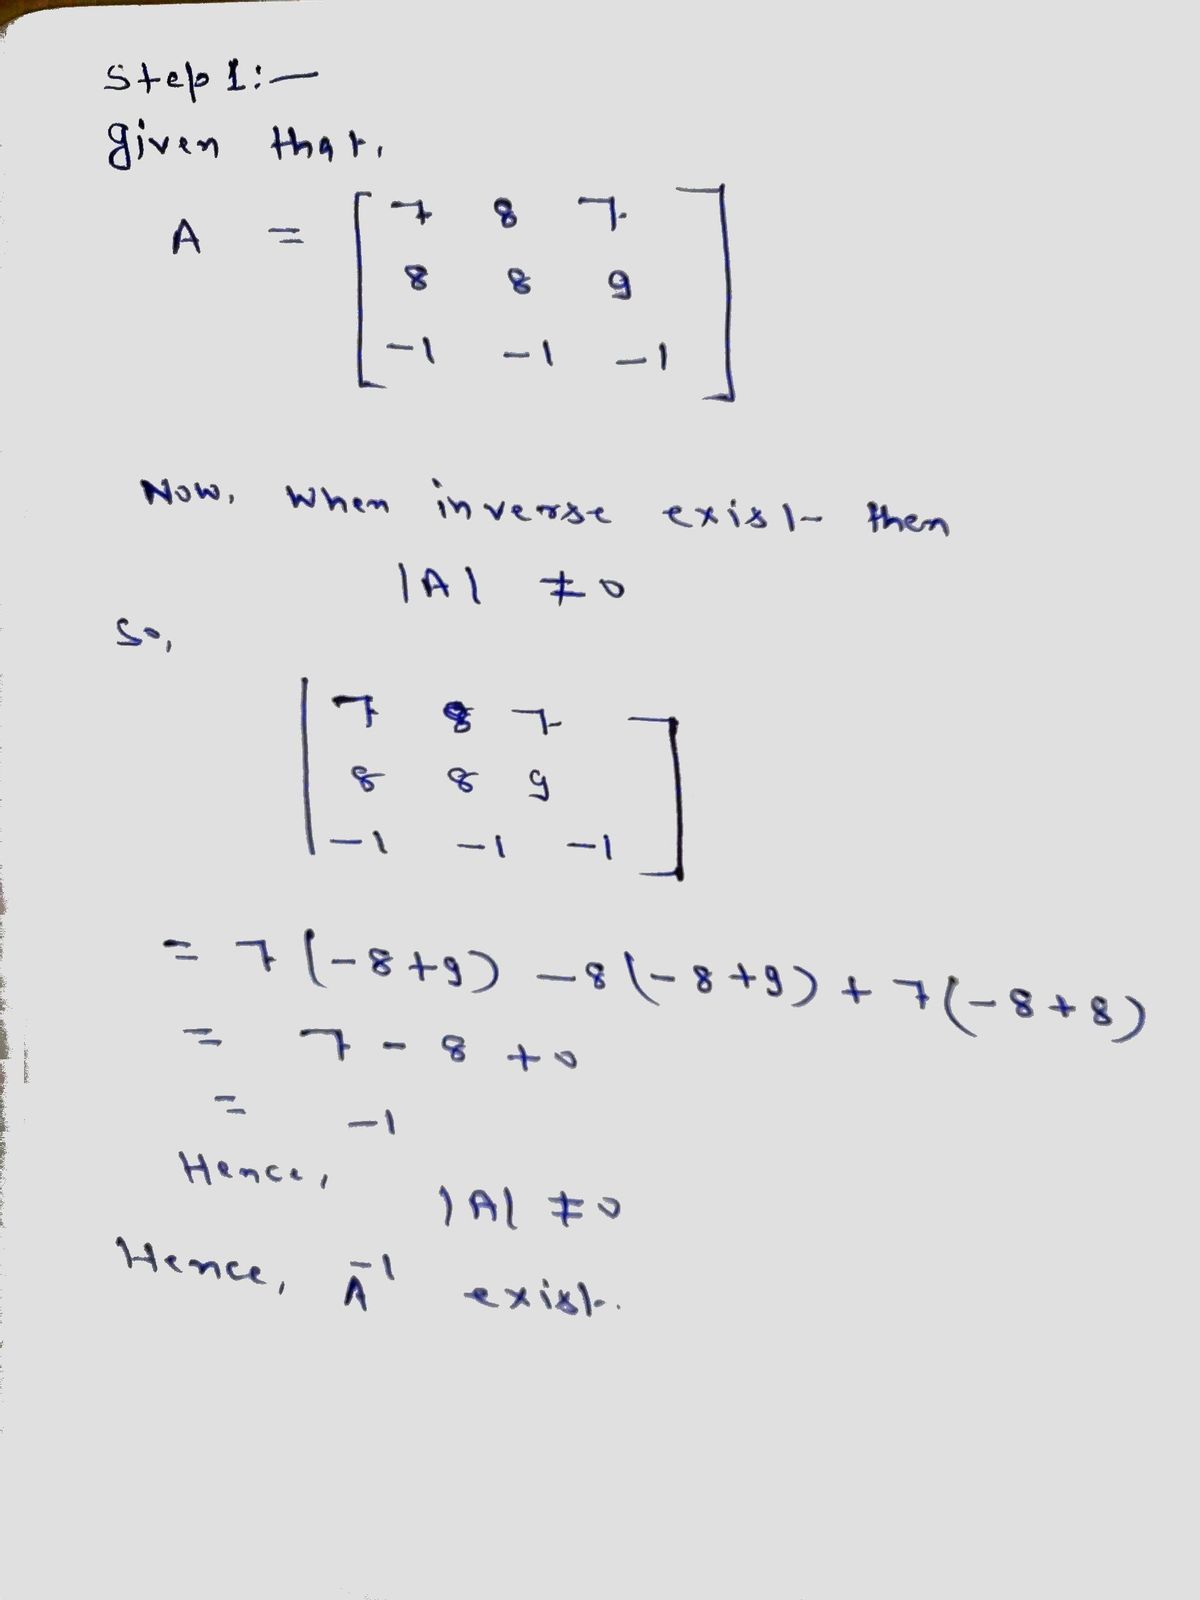 Step 1:—
given that,
A = [ 7 8 7
8 8 9
-1 -1 -1 ]
Now, when inverse exist then
|A| ≠ 0
So,
| 7 8 7
8 8 9
-1 -1 -1 ]
= 7(-8+9) -8(-8+9) + 7(-8+8)
= 7 - 8 + 0
= -1
Hence,
|A| ≠ 0
Hence, A⁻¹ exist.